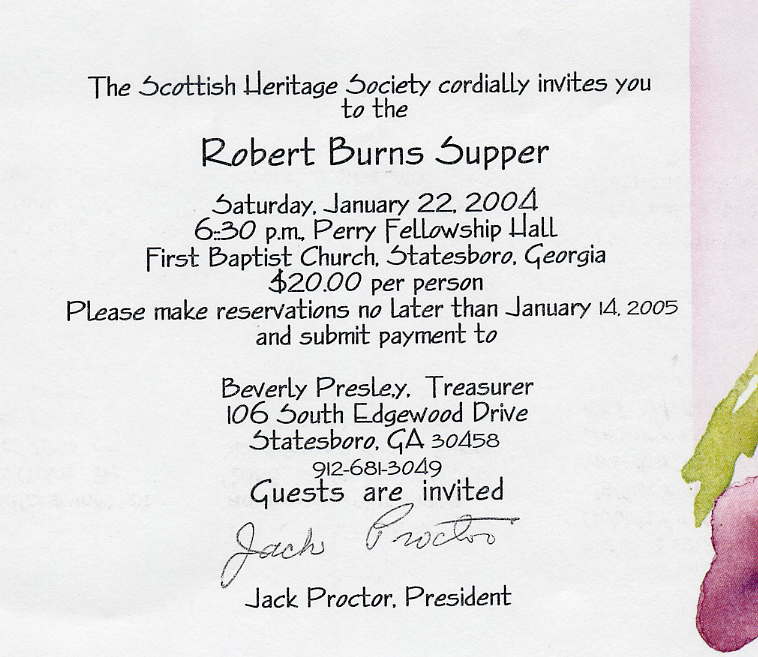 The Scottish Heritage Society cordially invites you
to the
Robert Burns Supper
Saturday, January 22, 2004
6:30 p.m., Perry Fellowship Hall
First Baptist Church, Statesboro, Georgia
$20.00 per person
Please make reservations no later than January 14, 2005
and submit payment to
Beverly Presley,y, Treasurer
106 South Edgewood Drive
Statesboro, GA 30458
912-681-3049
Guests are invited
Jack Proctor
Jack Proctor, President